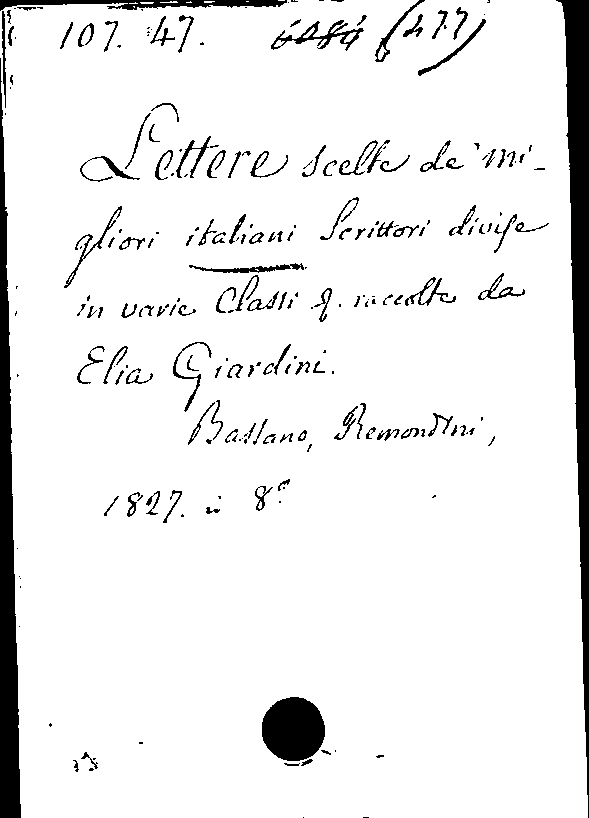 107. 47. (477)
Lettere scelte de' mi-
gliori italiani Scrittori divise
in varie Classi &. raccolte da
Elia Giardini.
Bassano, Remondini,
1827. in 8º